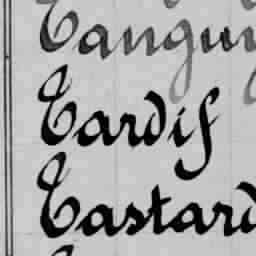 Tanguy
Tardif
Tastard